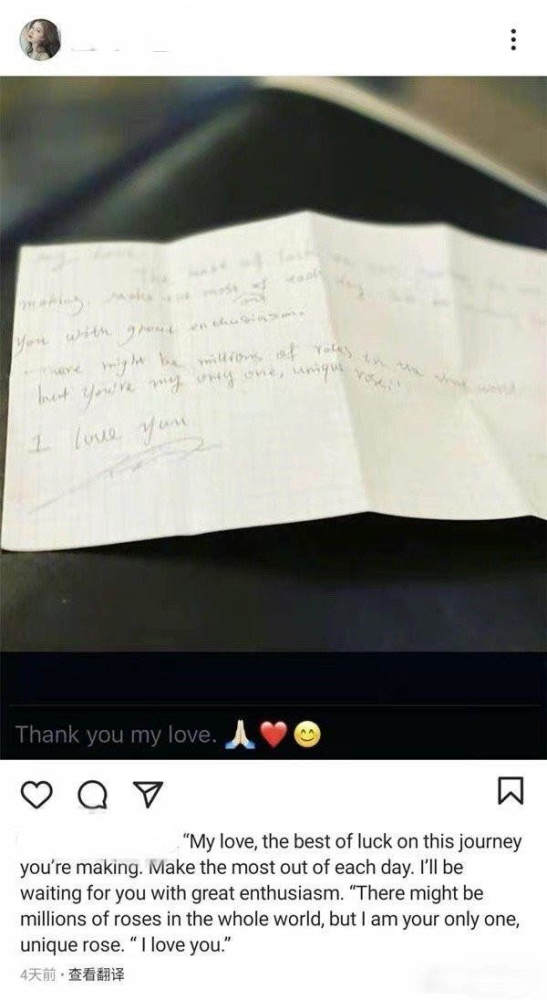 The most of each day
making. Make the most of
and
you with great enthusiasm.
There might be millions of roses in the whole world
but you're my only one, unique rose..
I love you
Thank you my love. 🙏🏻❤️😊
“My love, the best of luck on this journey
you’re making. Make the most out of each day. I’ll be
waiting for you with great enthusiasm. “There might be
millions of roses in the whole world, but I am your only one,
unique rose. “ I love you.”
4天前 · 查看翻译